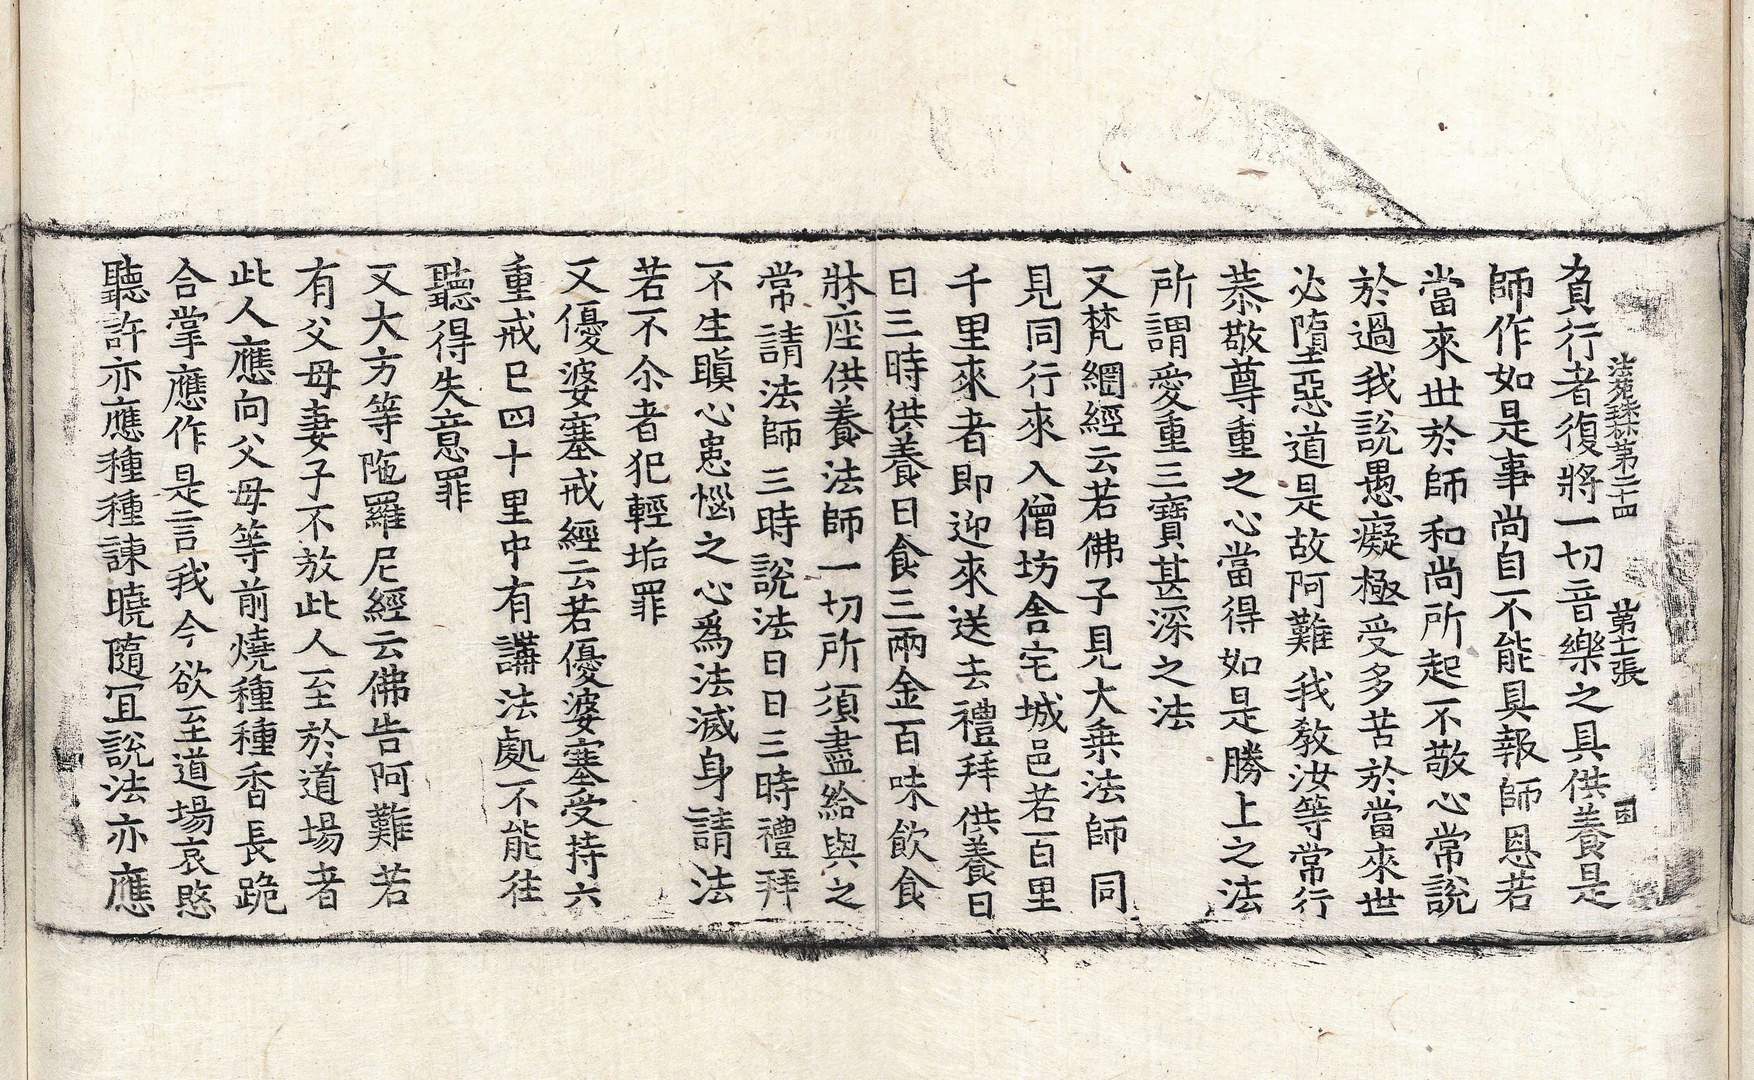 負行者復將一切音樂之具供養是
法苑珠林第二十四　第十二張　困
師作如是事尚自不能具報師恩若
當來世於師和尚所起不敬心常說
於過我說愚癡極受多苦於當來世
必墮惡道是故阿難我教汝等常行
恭敬尊重之心當得如是勝上之法
所謂愛重三寶甚深之法
又梵網經云若佛子見大乘法師同
見同行來入僧坊舍宅城邑若百里
千里來者即迎來送去禮拜供養日
日三時供養日食三兩金百味飲食
牀座供養法師一切所須盡給與之
常請法師三時說法日日三時禮拜
不生瞋心患惱之心爲法滅身請法
若不尒者犯輕垢罪
又優婆塞戒經云若優婆塞受持六
重戒已四十里中有講法處不能往
聽得失意罪
又大方等陁羅尼經云佛告阿難若
有父母妻子不放此人至於道場者
此人應向父母等前燒種種香長跪
合掌應作是言我今欲至道場哀愍
聽許亦應種種諫曉隨冝說法亦應